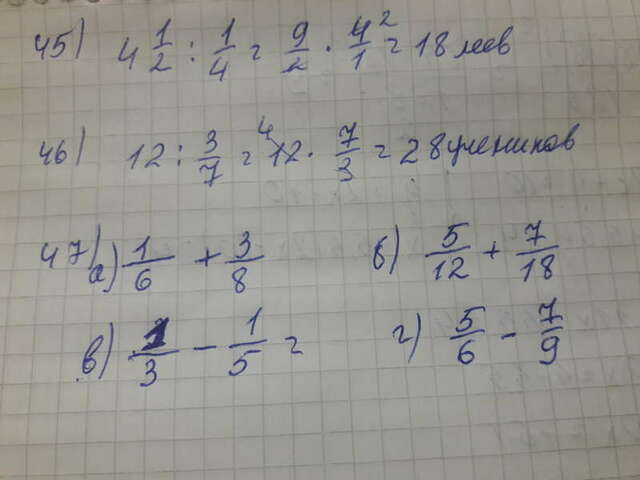 45) 4 1/2 : 1/4 = 9/2 · 4²/1 = 18 леев
46) 12 : 3/7 = 12⁴ · 7/3 = 28 учеников
47) а) 1/6 + 3/8 б) 5/12 + 7/18
в) 1/3 - 1/5 = г) 5/6 - 7/9